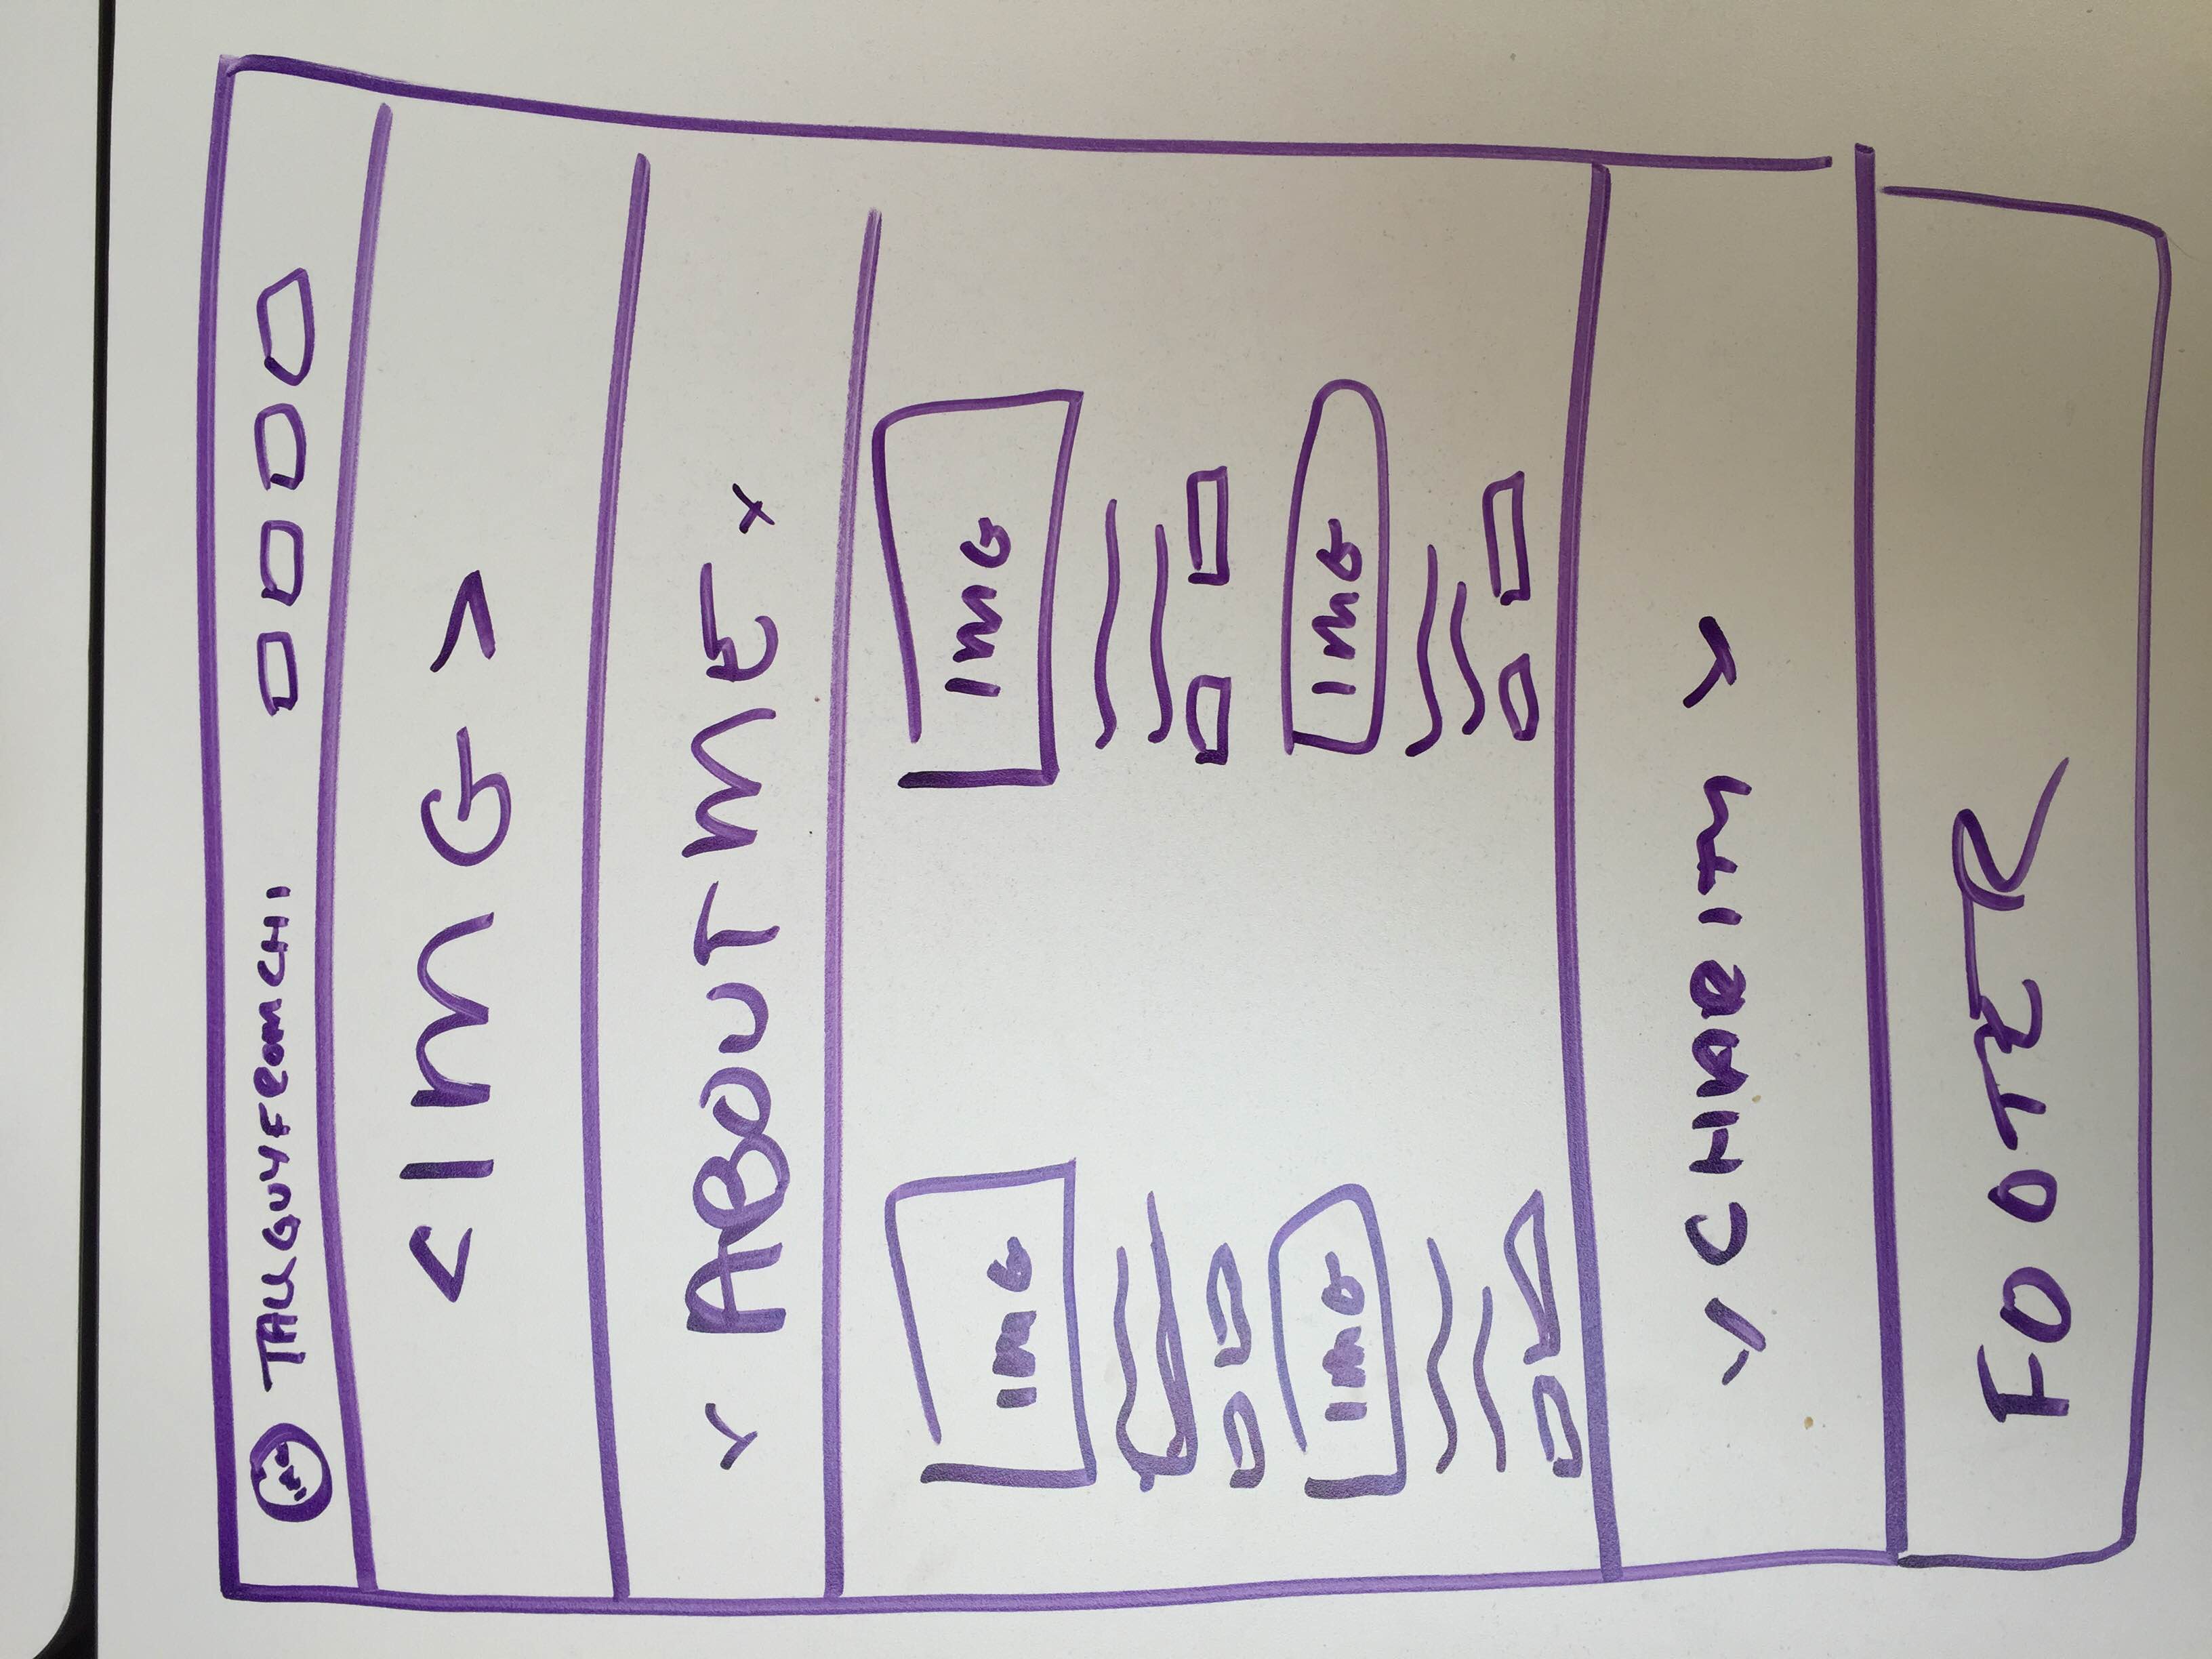 IMG TALLGUYFROMCHI
<IMG>
< ABOUT ME >
IMG IMG
IMG IMG
<CHARITY>
FOOTER